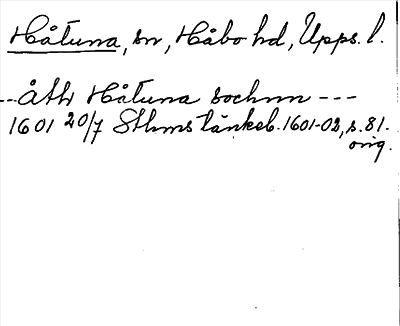 Håtuna, sn, Håbo hd, Upps. l.
--- åth Håtuna sochnn ---
1601 20/7 Sthms tänkeb. 1601-02, s. 81.
orig.